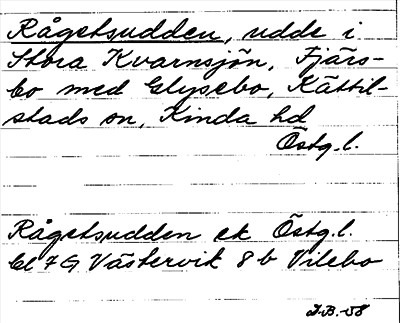 Rågetsudden, udde i
Stora Kvarnsjön, Fjärs-
bo med Glysebo, Kättil-
stads sn, Kinda hd
Östg.l.
Rågetsudden ek Östg.l.
bl 7G Västervik 8 b Vilebo
J.B. -58